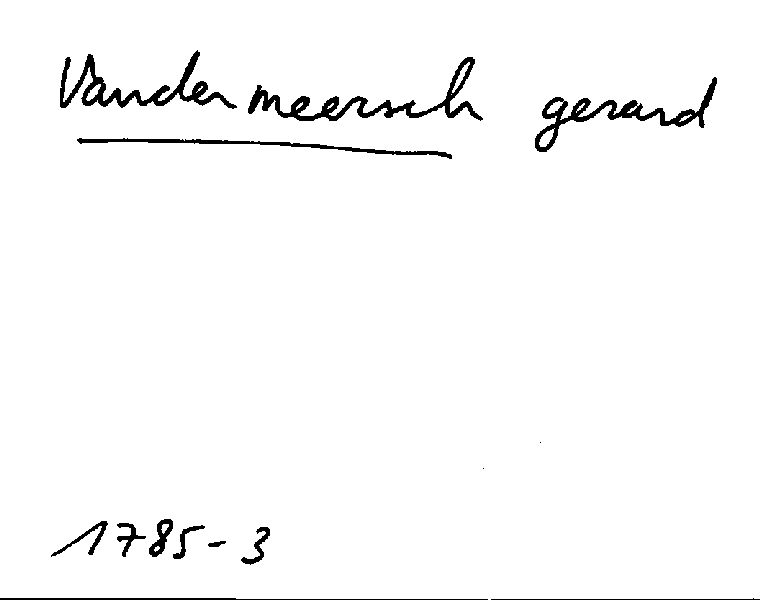 Vandermeersch gerard
1785-3